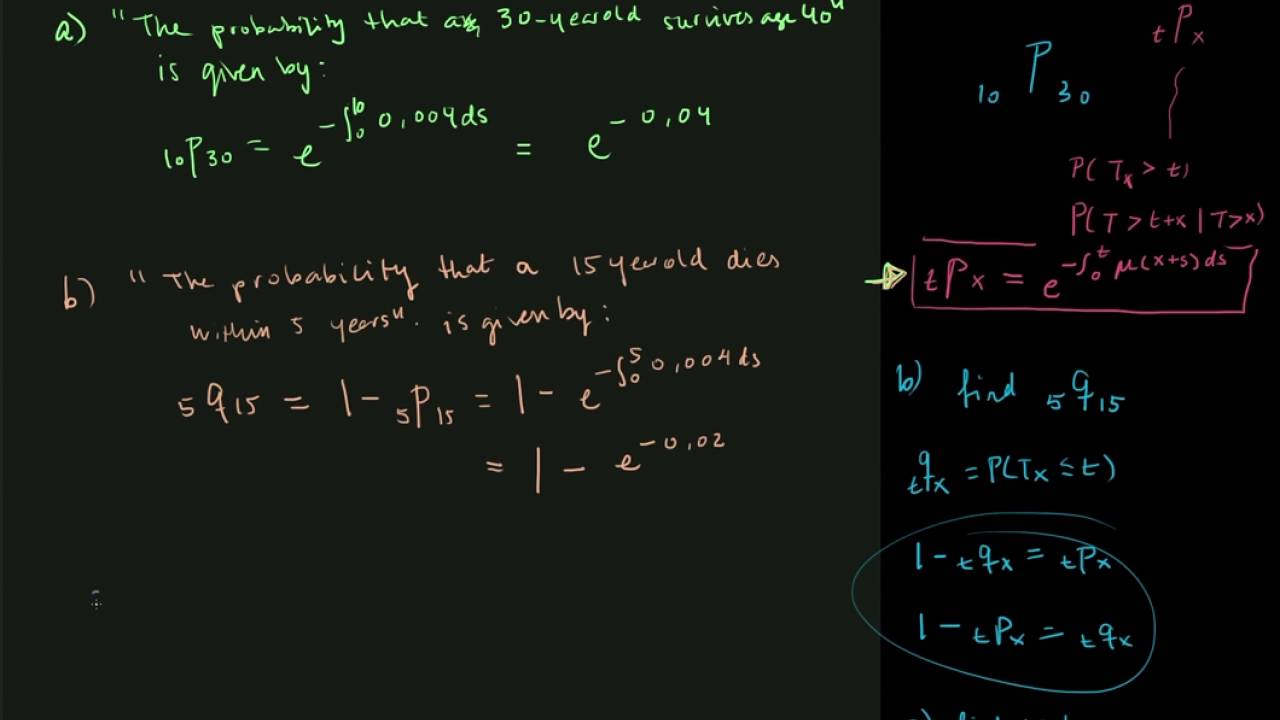 a) "The probability that a 30-yearold survives age 40"
is given by:
₁₀P₃₀ = e^{-∫₀^{10} 0,004ds} = e^{-0,04}
b) "The probability that a 15 yearold dies
within 5 years". is given by:
₅q₁₅ = 1 - ₅P₁₅ = 1 - e^{-∫₀^5 0,004ds}
= 1 - e^{-0,02}
ₜPₓ
₁₀P₃₀
P(Tₓ > t)
P(T > t+x | T>x)
ₜPₓ = e^{-∫₀^t μ(x+s)ds}
b) find ₅q₁₅
ₜqₓ = P(Tₓ ≤ t)
1 - ₜqₓ = ₜPₓ
1 - ₜPₓ = ₜqₓ